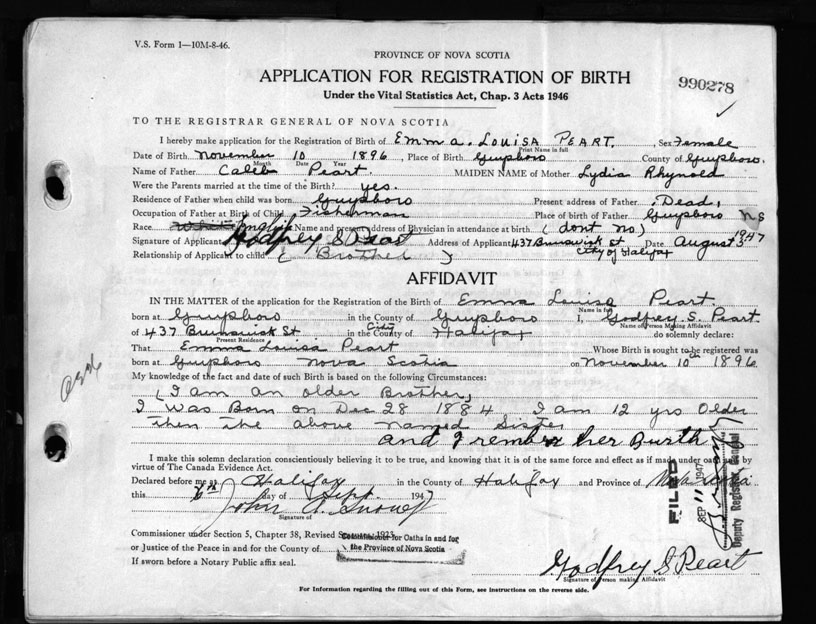 V.S. Form 1—10M-8-46.
PROVINCE OF NOVA SCOTIA
APPLICATION FOR REGISTRATION OF BIRTH
990278
Under the Vital Statistics Act, Chap. 3 Acts 1946
TO THE REGISTRAR GENERAL OF NOVA SCOTIA
I hereby make application for the Registration of Birth of Emma. Louisa Peart. Sex Female
Print Name in full
Date of Birth November 10 1896, Place of Birth Guysboro County of Guysboro.
Month Date Year
Name of Father Caleb Peart. MAIDEN NAME of Mother Lydia Rhynold
Were the Parents married at the time of the Birth? yes.
Residence of Father when child was born Guysboro Present address of Father (Dead)
Occupation of Father at Birth of Child Fisherman Place of birth of Father Guysboro NS
Race White English Name and present address of Physician in attendance at birth (dont no)
Signature of Applicant Godfrey S Peart Address of Applicant 437 Brunswick St Date August 3 1947
City of Halifax
Relationship of Applicant to child (Brother)
AFFIDAVIT
IN THE MATTER of the application for the Registration of the Birth of Emma Louisa Peart.
Name in full
born at Guysboro in the County of Guysboro I, Godfrey S. Peart
Name of Person Making Affidavit
of 437 Brunswick St in the City County of Halifax do solemnly declare:
Present Residence
That Emma Louisa Peart Whose Birth is sought to be registered was
born at Guysboro Nova Scotia on November 10th 1896
My knowledge of the fact and date of such Birth is based on the following Circumstances:
(I am an older Brother)
I Was Born on Dec 28 1884 I am 12 yrs Older
then the above named Sister
and I rember her Burth
I make this solemn declaration conscientiously believing it to be true, and knowing that it is of the same force and effect as if made under oath and by
virtue of The Canada Evidence Act.
Declared before me at Halifax in the County of Halifax and Province of Nova Scotia
this 6th day of Sept. 1947
John A.
Signature of
FILED
SEP 11 1947
Deputy Registrar General
Commissioner under Section 5, Chapter 38, Revised Statutes, 1923
or Justice of the Peace in and for the County of
Commissioner for Oaths in and for
the Province of Nova Scotia
If sworn before a Notary Public affix seal.
Godfrey S Peart
Signature of Person making Affidavit
For Information regarding the filling out of this Form, see instructions on the reverse side.